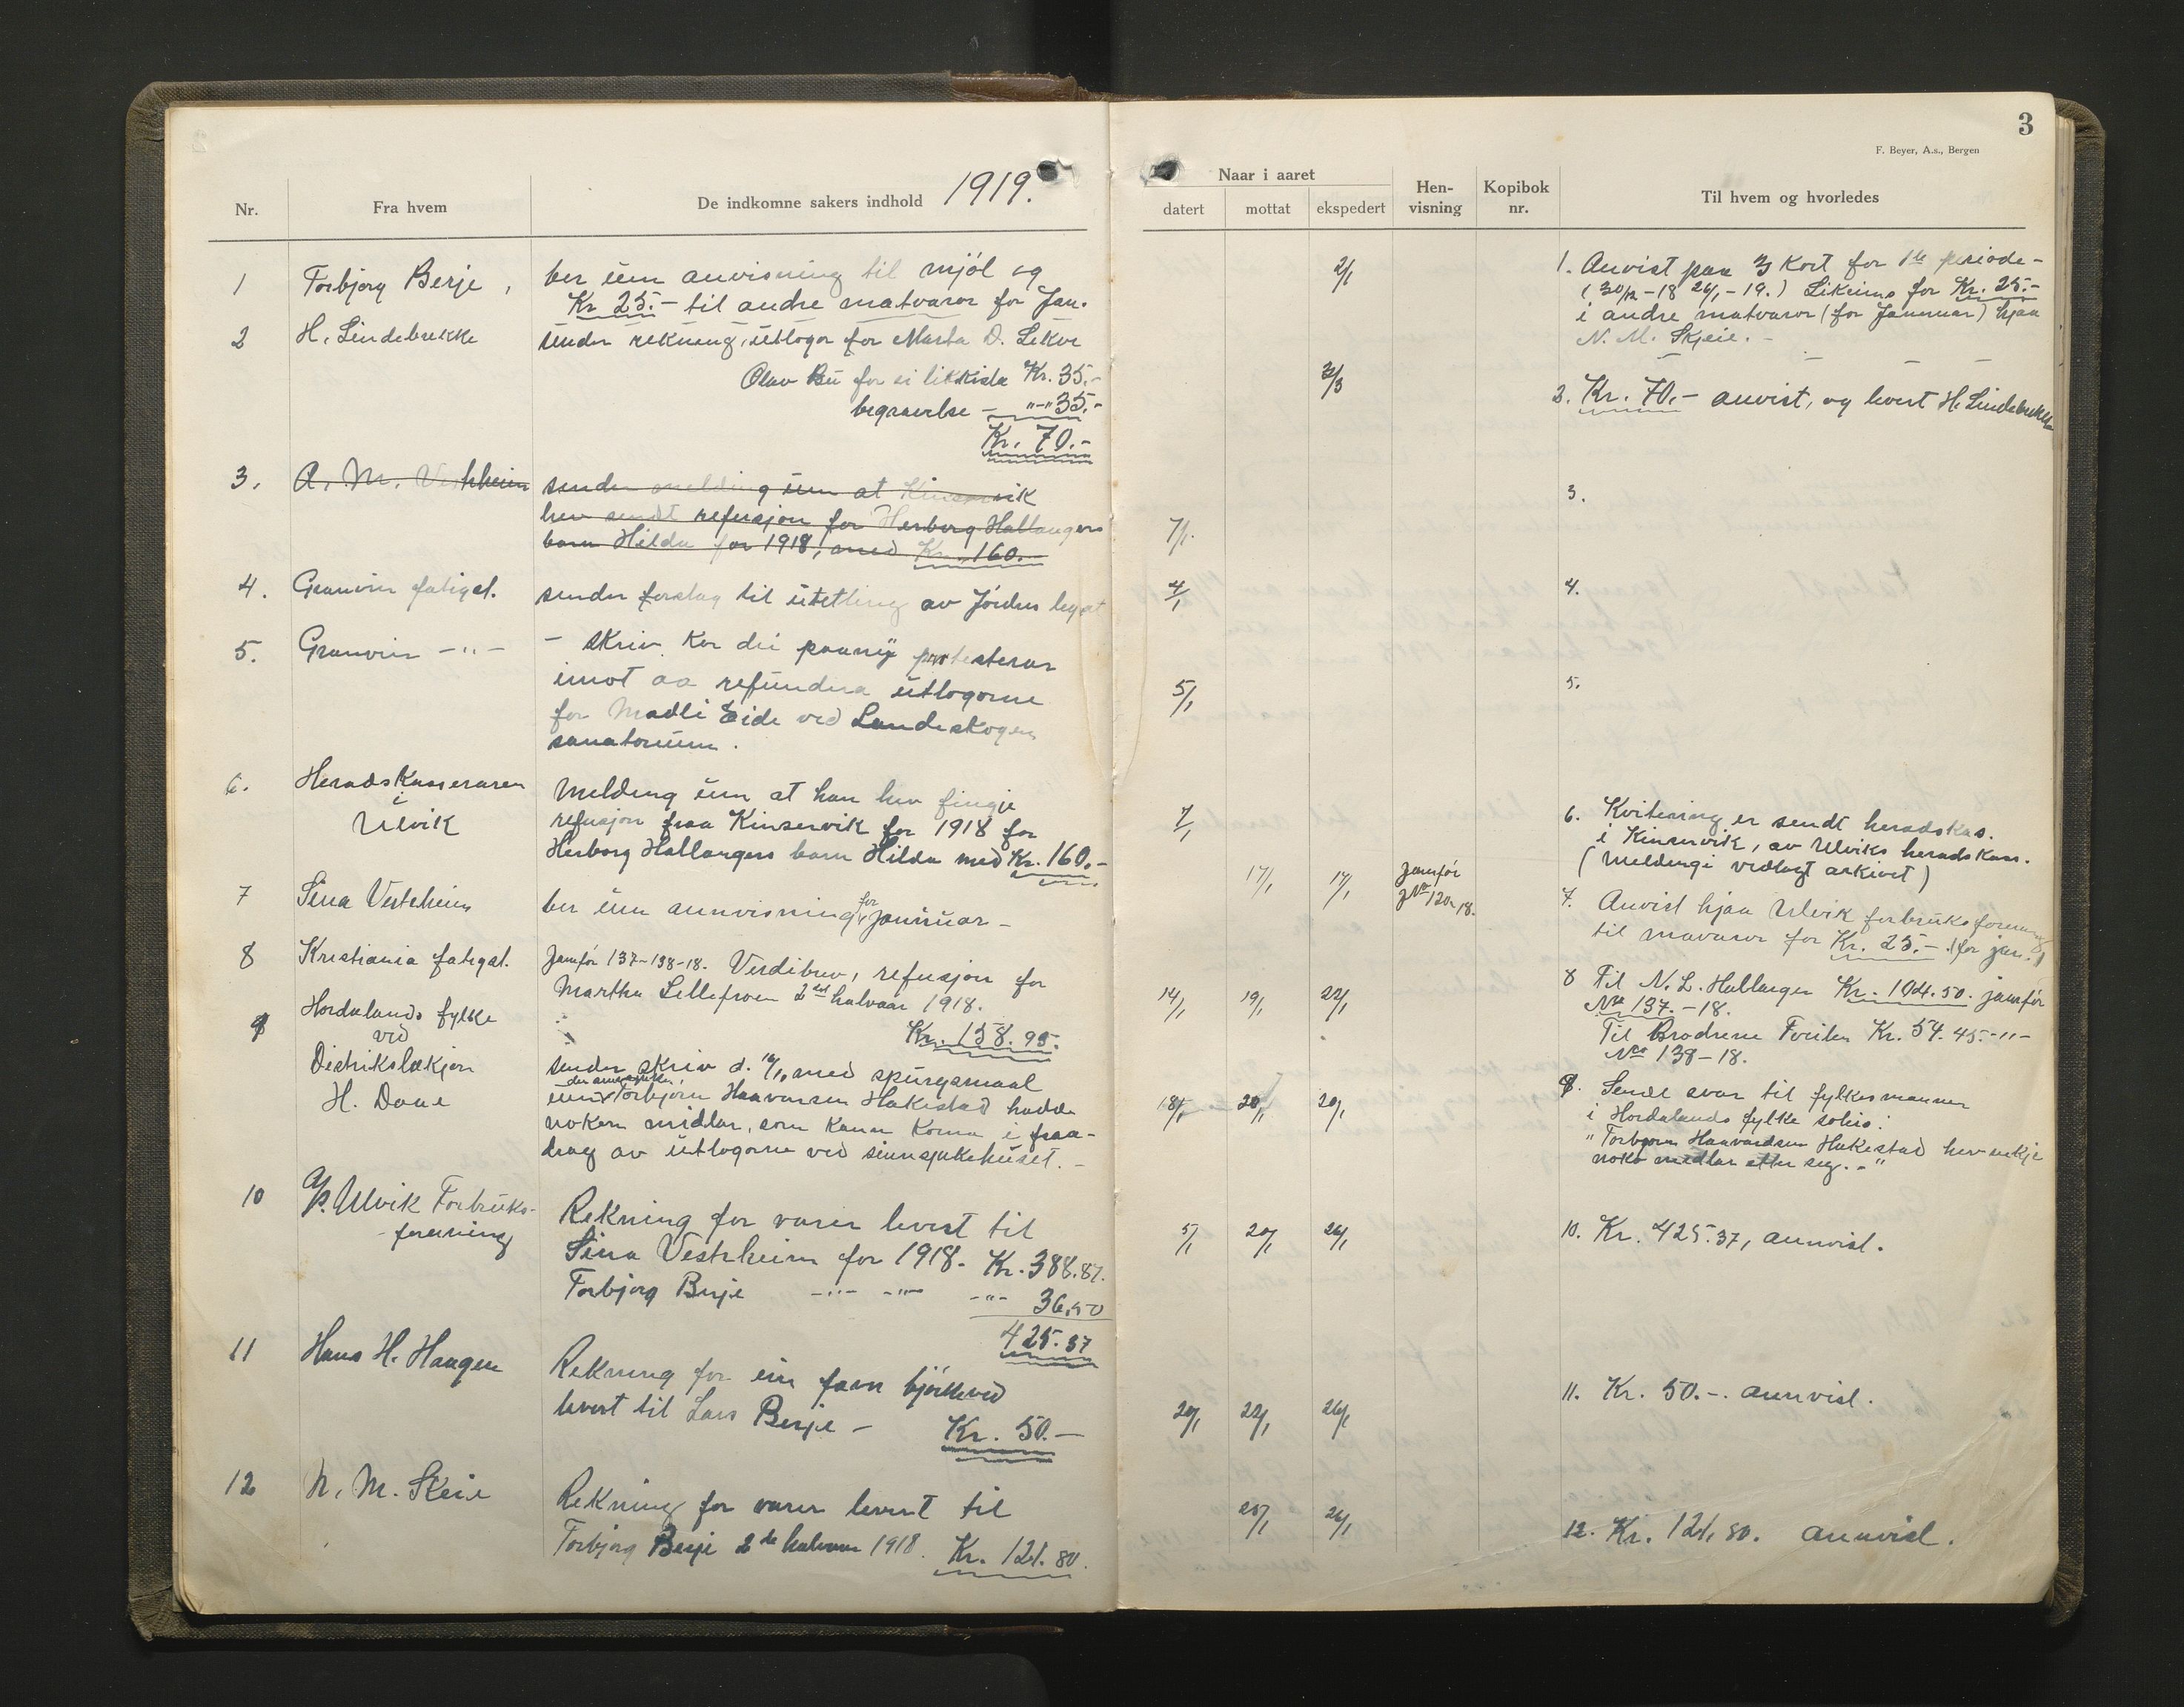 1919.
Nr.
Fra hvem
De indkomne sakers indhold
1
Torbjorg Berje,
ber um anvisning til mjöl og
Kr 25.- til andre matvaror for Jan.
2
H. Lindebrekke
sender rekning, utlogor for Marta O. Lekve
Olav Bu for ei likkista Kr. 35.-
begravelse - "-" 35.-
Kr. 70.-
3.
A. M. Vestrheim
sender melding um at Kinservik
hev sendt refusjon for Herborg Hallangers
barn Hilda for 1918, med Kr. 160.-
4.
Granvin fatigst.
sender forslag til utetling av Jördes legat
5.
Granvin -"-
- skriv. Kor dei paany protesterar
imot aa refundera utlogorne
for Madli Eide ved Landeskogen
sanatorium.
6.
Heradskasseraren
i
Ulvik
Melding um at han hev fingje
refusjon fraa Kinservik for 1918 for
Herborg Hallangers barn Hilda med Kr. 160.-
7
Sina Vestrheim
ber um annvisning for januar -
8
Kristiania fatigst.
Jamför 137-138-18. Verdibrev, refusjon for
Martha Lillefroen 2det halvaar 1918.
Kr. 158.95.
9
Hordalands fylke
ved
Distrikslækjar
H. Daae
sender skriv d. 18/1, med spursmaal
um Torbjörn Haavarsen Hakestad hadde
noken midlar, som kann koma i fraa-
drag av utlogorne ved sinnsjukehuset. -
10
A/s. Ulvik Forbruks-
forening
Rekning for varer levert til
Sina Vestrheim for 1918. Kr. 388.87.
Torbjorg Berje -"- -"- -"- 36.50
425.37
11
Hans H. Haugen
Rekning for ein favn björkeved
levert til Lars Berje -
Kr. 50.-
12
N. M. Skeie
Rekning for varer levert til
Torbjorg Berje 2de halvaar 1918. Kr. 121.80.
3
F. Beyer, A.s., Bergen
Naar i aaret
datert
mottat
ekspedert
Hen-
visning
Kopibok
nr.
Til hvem og hvorledes
2/1
1. Anvist paa 3 Kort for 1ste periode -
(30/12-18 26/1-19.) Likeins for Kr. 25.-
i andre matvaror (for Januar) hjaa
N. M. Skjeie. -
3/3
2. Kr. 70.- anvist, og levert H. Lindebrekke
7/1.
3.
4/1
4.
5/1
5.
7/1
6. Kvitering er sendt heradskas.
i Kinservik, av Ulviks heradskass.
(Meldingi vedlagt arkivet)
17/1
17/1
Jamför
No 120-18.
7. Anvist hjaa Ulvik forbruksforening
til mavaror for Kr. 25.- (for jan.)
14/1
19/1
22/1
8 Til N. L. Hallanger Kr. 104.50. jamför
No 137.-18.
Til Brödrene Kr. 54.45.-"-
No 138-18.
18/1
20/1
20/1
9. Sendt svar til fylkesmannen
i Hordalands fylke soleis:
"Torbjorn Haavardsen Hakestad hev inkje
noko midlar etter seg. -"
5/1
20/1
26/1
10. Kr. 425.37, annvist.
20/1
22/1
26/1
11. Kr. 50.-. annvist.
25/1
26/1
12. Kr. 121.80. annvist.